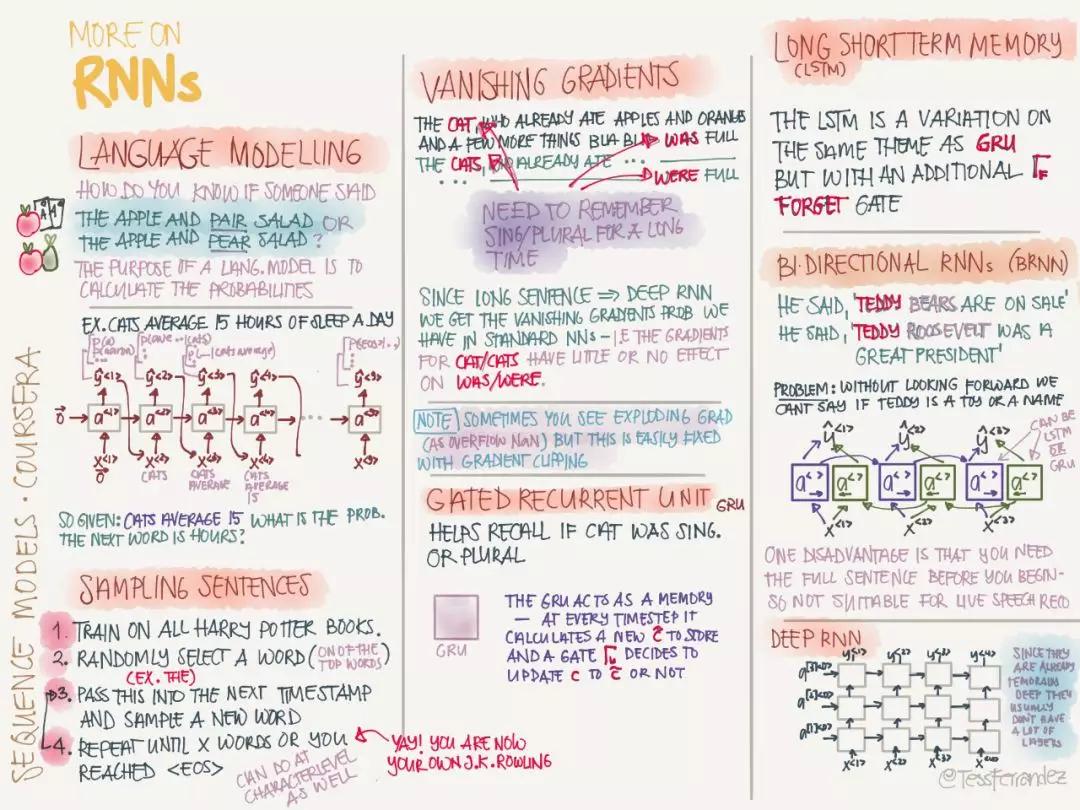 MORE ON
RNNs
LANGUAGE MODELLING
HOW DO YOU KNOW IF SOMEONE SAID
THE APPLE AND PAIR SALAD OR
THE APPLE AND PEAR SALAD?
THE PURPOSE OF A LANG. MODEL IS TO
CALCULATE THE PROBABILITIES
EX. CATS AVERAGE 15 HOURS OF SLEEP A DAY
P(a)
P(aaron)
P(...|cats average)
P(<EOS>|...)
ŷ<1> ŷ<2> ŷ<3> ŷ<4> ŷ<9>
0⃗ a<1> a<2> a<3> a<4> ... a<9>
x<1> x<2> x<3> x<4> x<9>
0⃗
CATS
CATS
AVERAGE
CATS
AVERAGE
15
SO GIVEN: CATS AVERAGE 15 WHAT IS THE PROB.
THE NEXT WORD IS HOURS?
SAMPLING SENTENCES
1. TRAIN ON ALL HARRY POTTER BOOKS.
2. RANDOMLY SELECT A WORD (ON OF THE
TOP WORDS)
(EX. THE)
3. PASS THIS INTO THE NEXT TIMESTAMP
AND SAMPLE A NEW WORD
4. REPEAT UNTIL X WORDS OR YOU
REACHED <EOS>
YAY! YOU ARE NOW
YOUR OWN J.K. ROWLING
CAN DO AT
CHARACTER LEVEL
AS WELL
SEQUENCE MODELS · COURSERA
VANISHING GRADIENTS
THE CAT, WHO ALREADY ATE APPLES AND ORANGES
AND A FEW MORE THINGS BLA BLA WAS FULL
THE CATS, WHO ALREADY ATE ...
... WERE FULL
NEED TO REMEMBER
SING/PLURAL FOR A LONG
TIME
SINCE LONG SENTENCE ⇒ DEEP RNN
WE GET THE VANISHING GRADIENTS PROB WE
HAVE IN STANDARD NNs – I.E THE GRADIENTS
FOR CAT/CATS HAVE LITLE OR NO EFFECT
ON WAS/WERE.
NOTE SOMETIMES YOU SEE EXPLODING GRAD
(AS OVERFLOW NaN) BUT THIS IS EASILY FIXED
WITH GRADIENT CLIPPING
GATED RECURRENT UNIT GRU
HELPS RECALL IF CAT WAS SING.
OR PLURAL
GRU
THE GRU ACTS AS A MEMORY
– AT EVERY TIMESTEP IT
CALCULATES A NEW c̃ TO STORE
AND A GATE Γu DECIDES TO
UPDATE c TO c̃ OR NOT
LONG SHORT TERM MEMORY
(LSTM)
THE LSTM IS A VARIATION ON
THE SAME THEME AS GRU
BUT WITH AN ADDITIONAL Γf
FORGET GATE
BI-DIRECTIONAL RNNs (BRNN)
HE SAID, 'TEDDY BEARS ARE ON SALE'
HE SAID, 'TEDDY ROOSEVELT WAS A
GREAT PRESIDENT'
PROBLEM: WITHOUT LOOKING FORWARD WE
CANT SAY IF TEDDY IS A TOY OR A NAME
ŷ<1> ŷ<2> ŷ<3>
CAN BE
LSTM
OR
GRU
a< > a< > a< > a< > a< > a< >
x<1> x<2> x<3>
ONE DISADVANTAGE IS THAT YOU NEED
THE FULL SENTENCE BEFORE YOU BEGIN-
SO NOT SUITABLE FOR LIVE SPEECH RECO
DEEP RNN
y<1> y<2> y<3> y<4>
a[3]<0>
a[2]<0>
a[1]<0>
x<1> x<2> x<3> x<4>
SINCE THEY
ARE ALREADY
TEMORALLY
DEEP THEY
USUALLY
DON'T HAVE
A LOT OF
LAYERS
@TessFerrandez